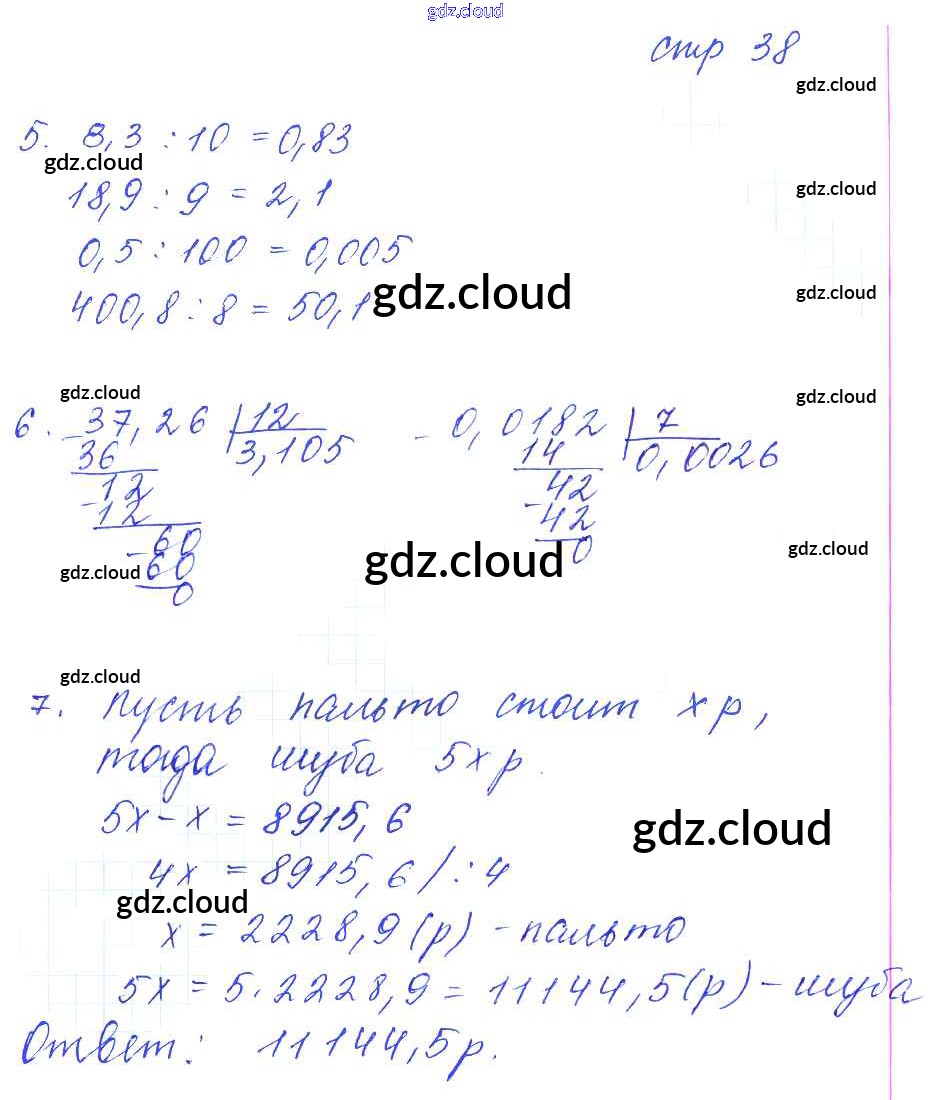 gdz.cloud
стр 38
gdz.cloud
5. 8,3 : 10 = 0,83
gdz.cloud
18,9 : 9 = 2,1
gdz.cloud
0,5 : 100 = 0,005
400,8 : 8 = 50,1
gdz.cloud
gdz.cloud
gdz.cloud
gdz.cloud
6. 37,26 | 12
36 3,105
- 12
12
- 60
60
0
- 0,0182 | 7
14 0,0026
- 42
42
0
gdz.cloud
gdz.cloud
gdz.cloud
gdz.cloud
7. Пусть пальто стоит х р,
тогда шуба 5х р.
5х - х = 8915,6
gdz.cloud
4х = 8915,6 / : 4
gdz.cloud
х = 2228,9 (р) - пальто
5х = 5 · 2228,9 = 11144,5 (р) - шуба
Ответ: 11144,5 р.